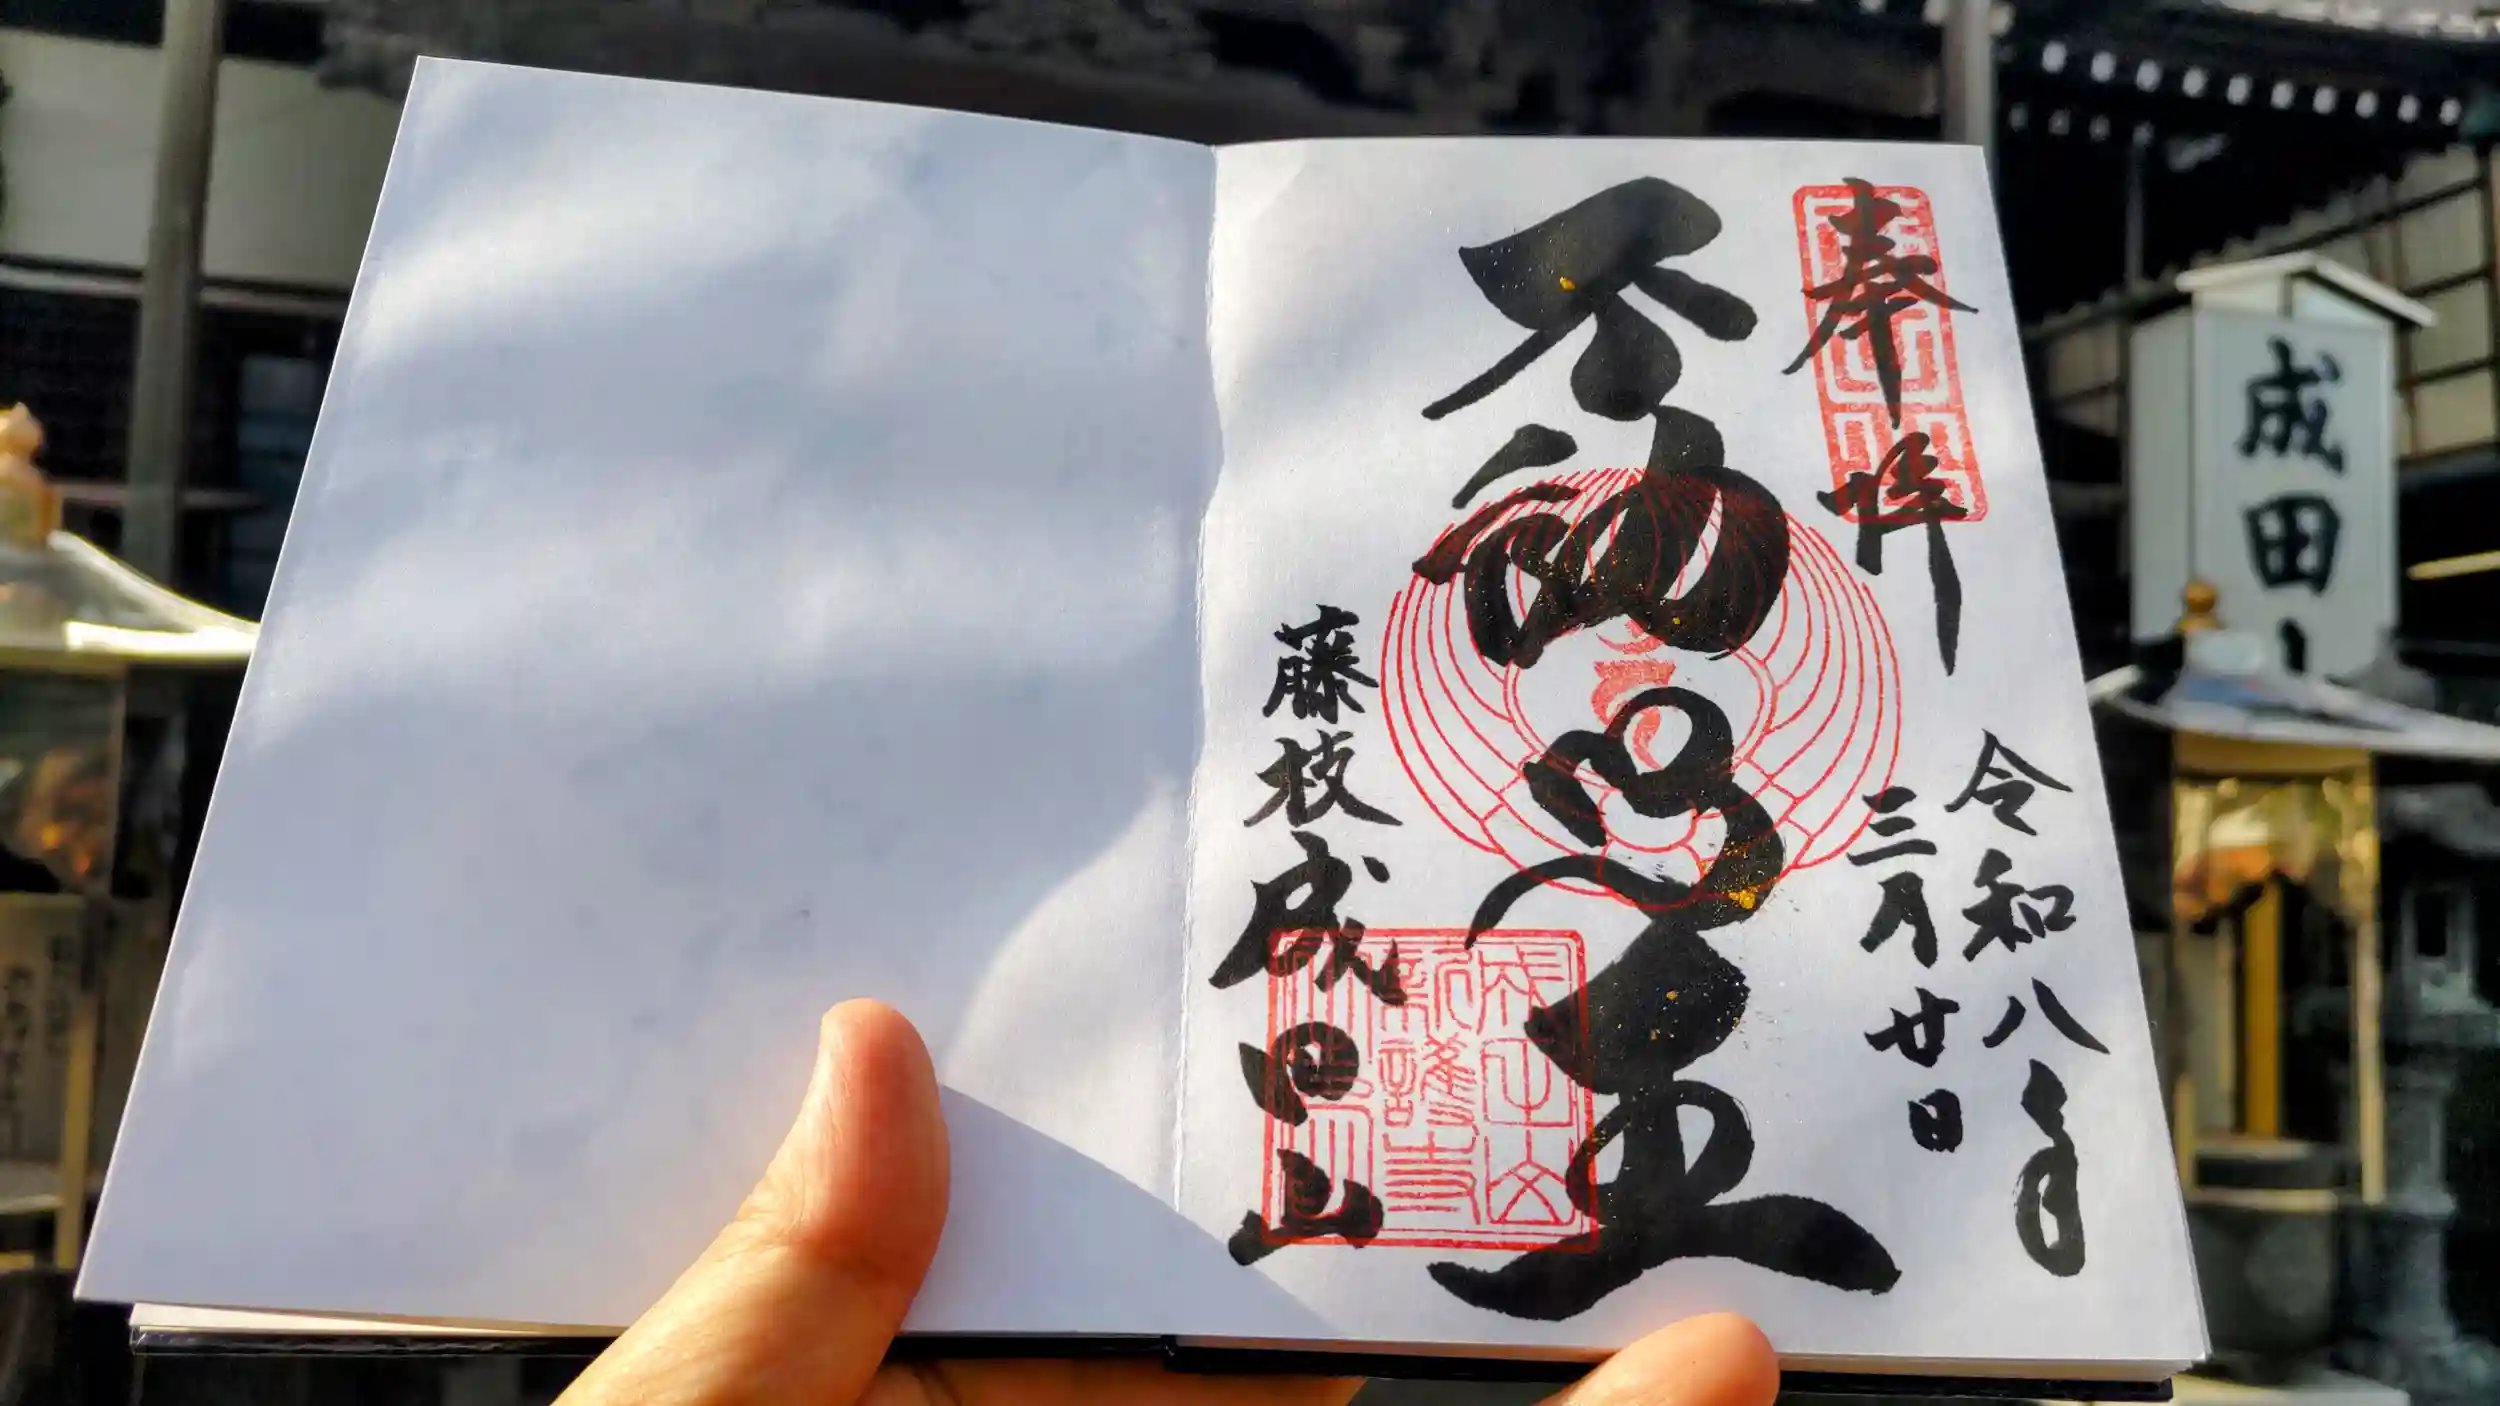 奉拝
令和八年
三月廿日
不動明王
藤枝
成田山
成田山